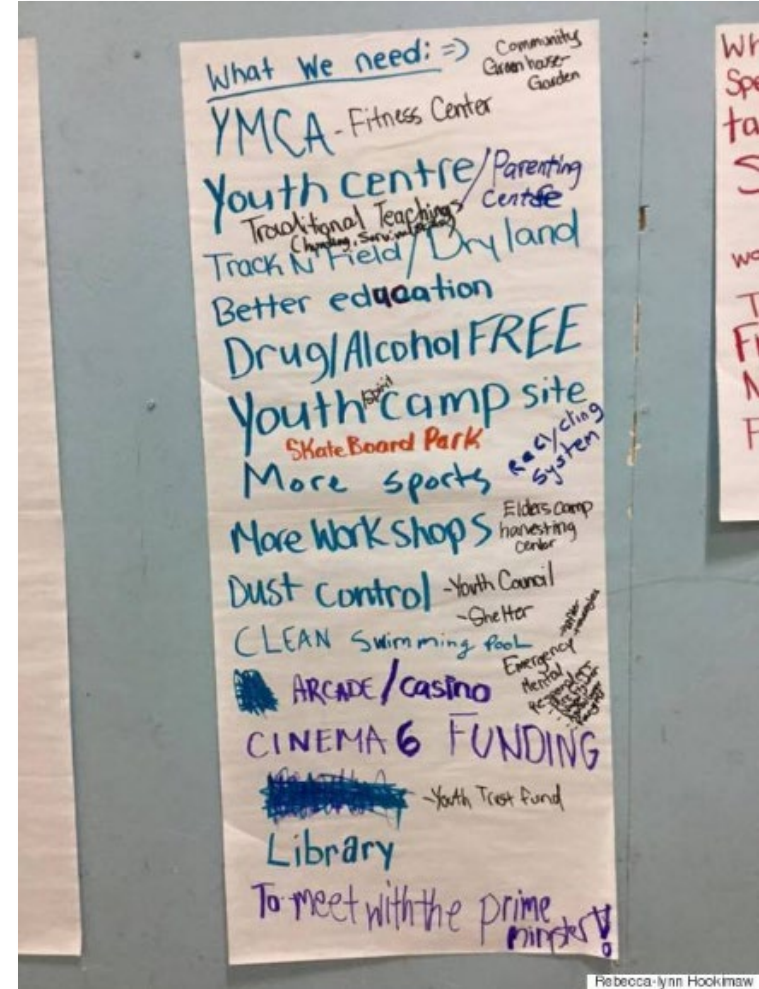 What We need: =>
Community
Greenhouse-
Garden
YMCA - Fitness Center
Youth centre/Parenting
Centre
Traditional Teachings
Track N' Field/Dry land
Better education
Drug/Alcohol FREE
Youth camp site
Spirit
SkateBoard Park
Recycling
System
More sports
More Workshops
Elders camp
harvesting
center
Dust control
-Youth Council
-Shelter
CLEAN Swimming PooL
Emergency
Mental
ARCADE/casino
CINEMA 6 FUNDING
-Youth Trust fund
Library
To meet with the prime
minister!
Rebecca-lynn Hookimaw